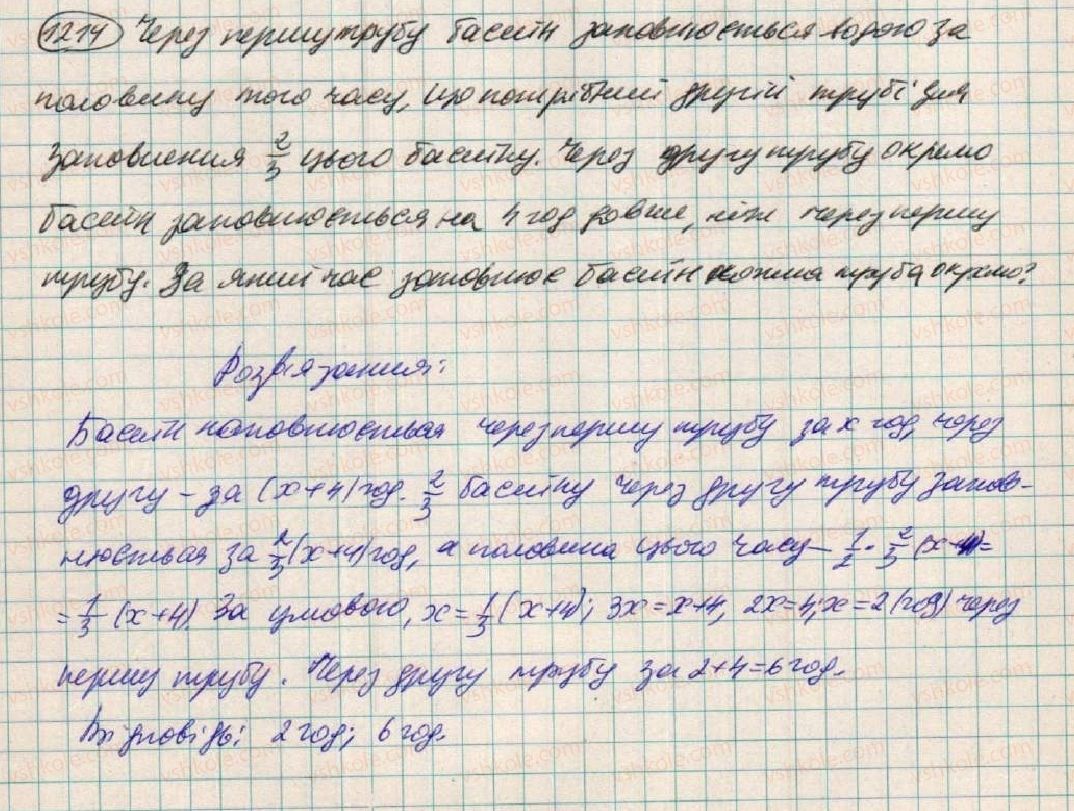 1214 Через першу трубу басейн заповнюється водою за
половину того часу, що потрібний другій трубі для
заповнення 2/3 цього басейну. Через другу трубу окремо
басейн заповнюється на 4 год довше, ніж через першу
трубу. За який час заповнює басейн кожна труба окремо?
Розв'язання:
Басейн наповнюється через першу трубу за x год, через
другу – за (x+4) год. 2/3 басейну через другу трубу запов-
нюється за 2/3(x+4) год, а половина цього часу – 1/2 · 2/3 (x+4)=
= 1/3 (x+4) За умовою, x = 1/3 (x+4); 3x = x+4, 2x=4, x=2 (год) через
першу трубу. Через другу трубу за 2+4=6 год.
Відповідь: 2 год; 6 год.